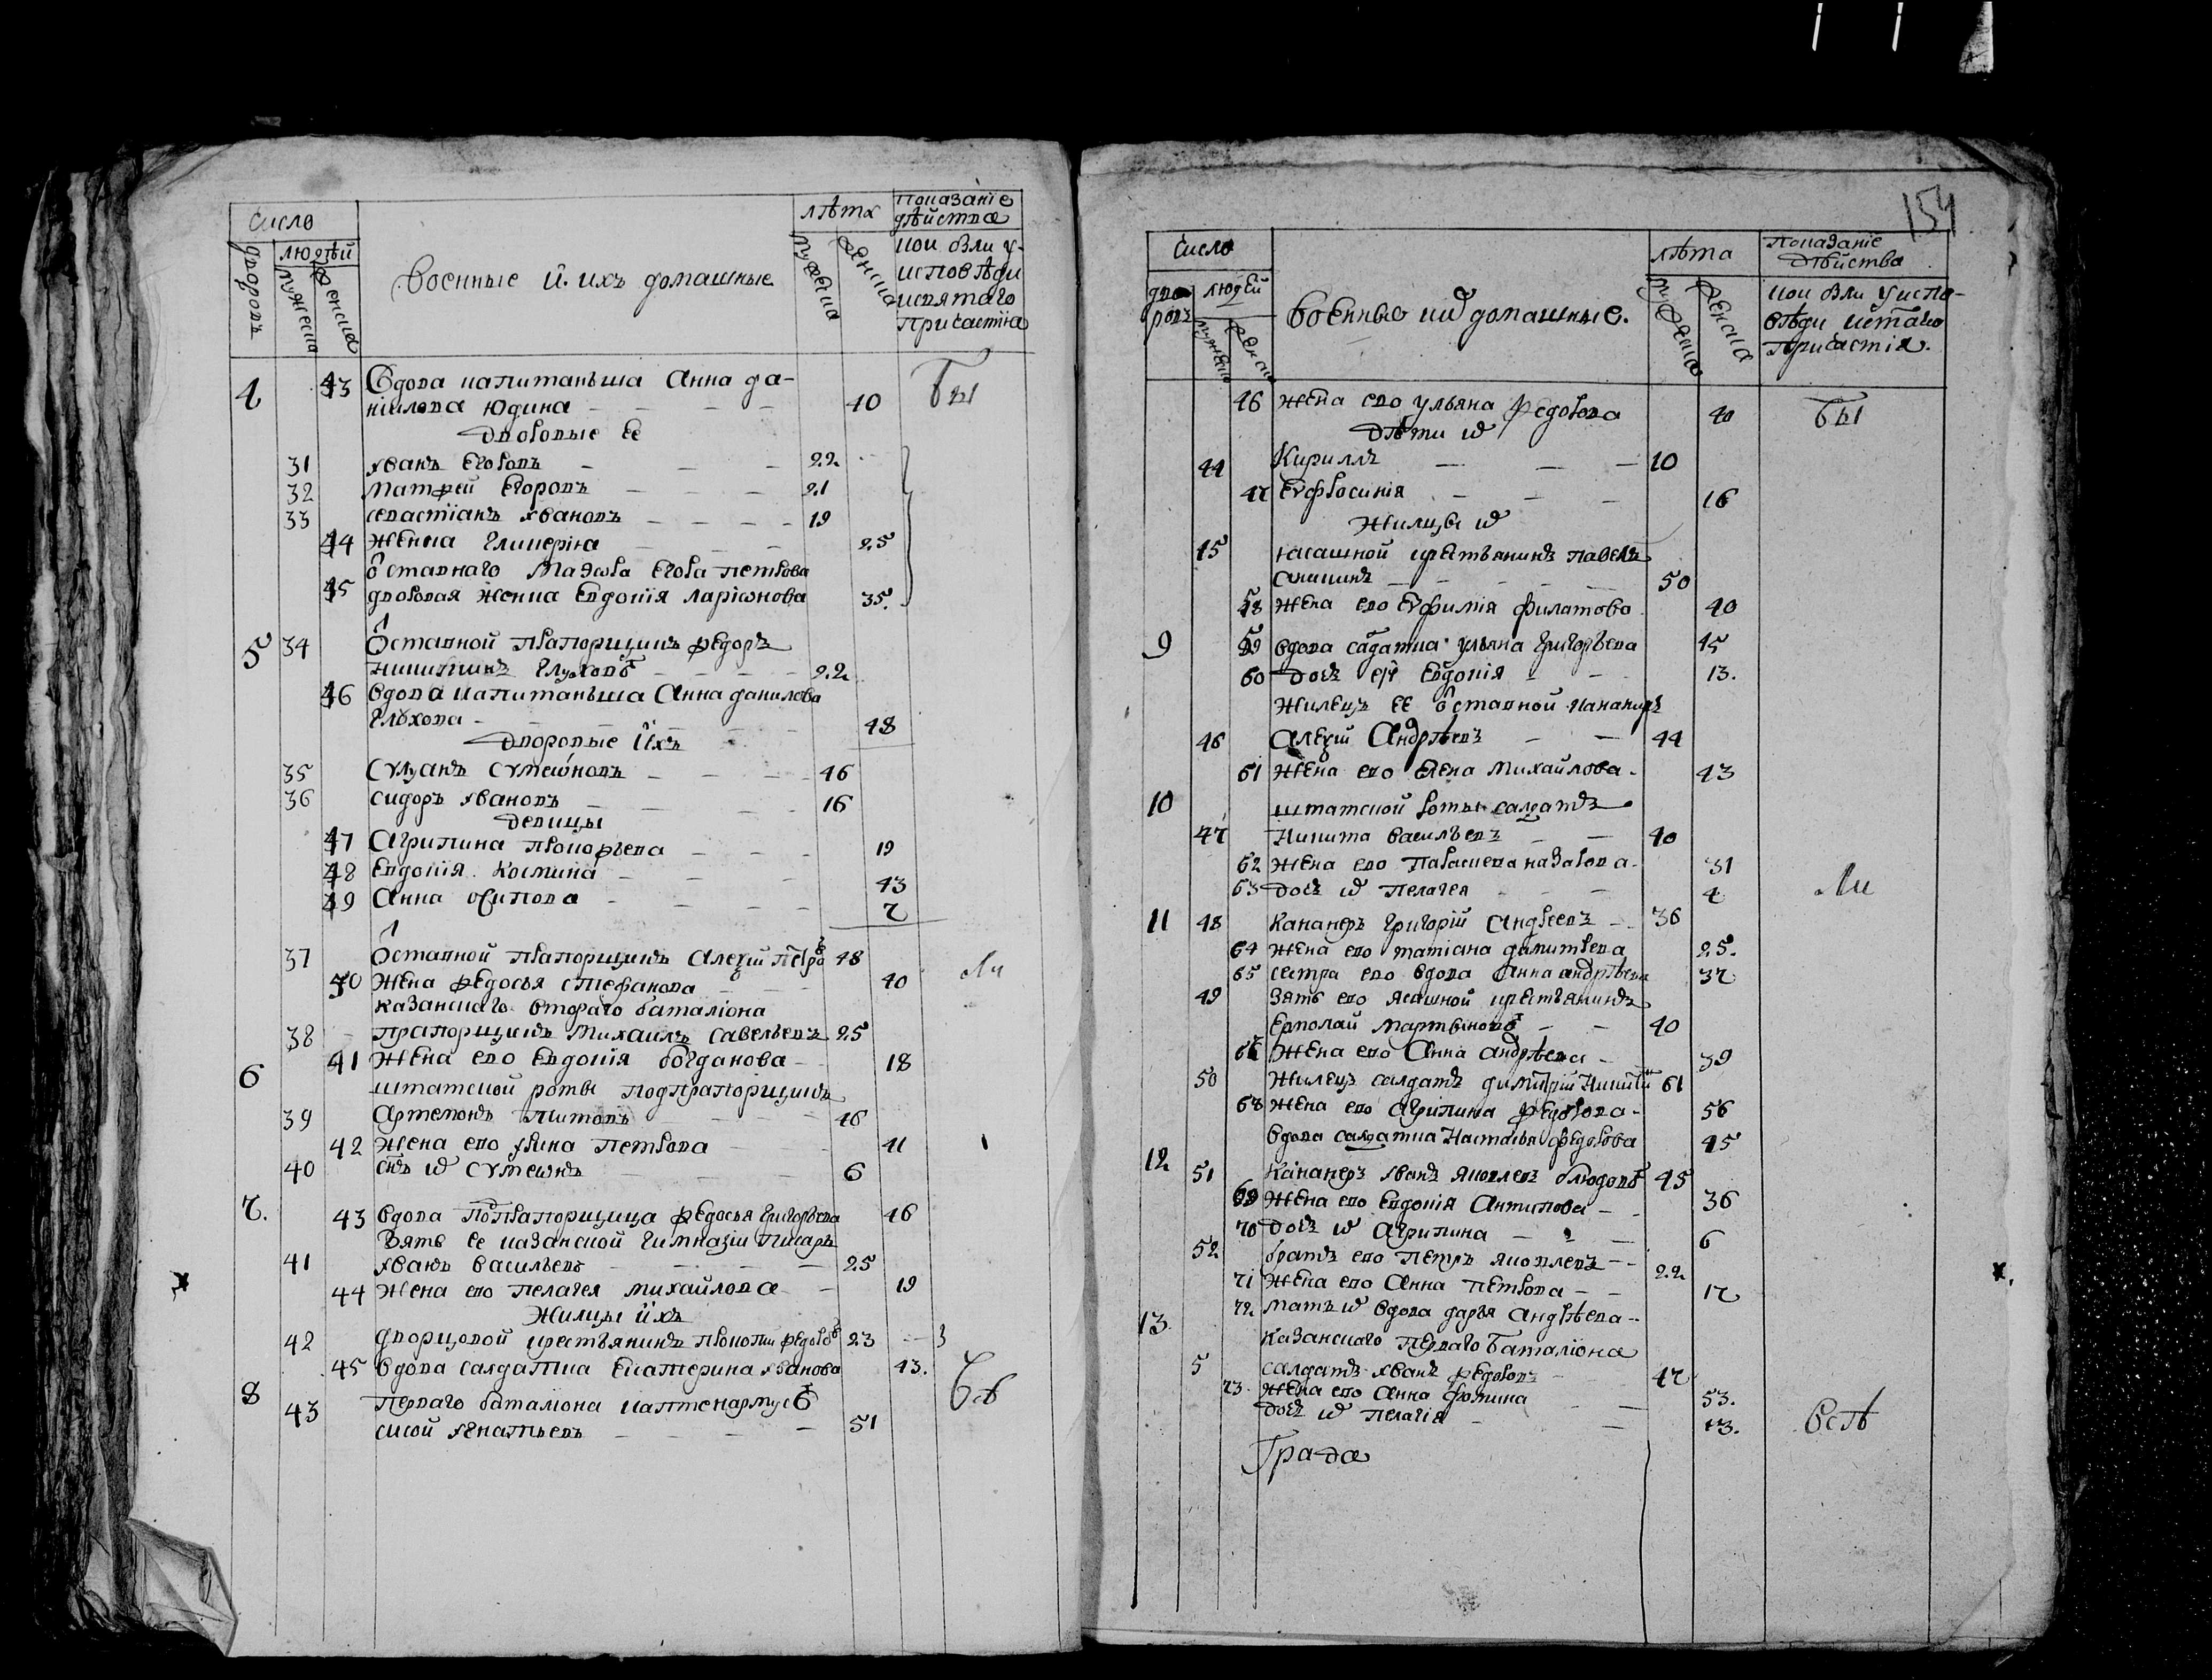 число
дворовъ
людѣй
мужеска
женска
Военные й ихъ домашные
лѣта
мужеска
женска
Показаніе
дѣйства
кои были у
исповѣди
и святаго
Причастиа
4 43 Вдова капитанъша Анна да-
ніилова Юдина — — — 40 бы
дворовые Ее
31 Іванъ Егоровъ — — — 22
32 Матфей Егоровъ — — — 21
33 севастіанъ Івановъ — — — 19
44 женка Гликеріа — — 25
Отставнаго Маэора Егора петрова
45 дворовая женка Евдокія Ларіѡнова 35.
5 34 Отставной Прапорщикъ Ѳедоръ
никитинъ Глуховъ — — — 22
46 Вдова капитанъша Анна данилова
Глухова — — — 48
дворовые Ихъ
35 Сулуанъ Сумеѡновъ — — — 46
36 сидоръ Івановъ — — — 16
девицы
47 Агрипина прокофъева — — — 19
48 Евдокія Космина — — — 43
49 Анна Осипова — — — 7
37 Отставной Прапорщикъ Алеѯій Петро 48
40 Жена Ѳедосья стефанова — — 40 ли
казанскаго втораго баталіона
38 прапорщикъ Михаилъ Савельевъ 25
41 Жена ево Евдокія богданова — 18
6 штатской роты подпрапорщикъ
39 Артемонъ Титовъ — — 46
42 Жена ево Ірина Петрова — 41
40 снъ и Сумеѡнъ — — 6
7. 43 Вдова подпрапорщица Ѳедосья Григоръева 46
Зять Ее казанской Гимназіи Писаръ
41 Іванъ Васильевъ — — — 25
44 Жена ево пелагея михайлова — 19
Жилцы ихъ
42 дворцовой крестъянинъ прокопи Ѳедоров 23
45 Вдова салдатка Екатерина Іванова 43.
8 43 перваго баталіона каптенармус
сисой Ігнатьевъ — — — 51
154
число
дво-
ровъ
людей
мужеска
женска
Военные их домашные.
лѣта
мужеска
женска
Показаніе
дѣйства
кои были у испо-
вѣди и стаго
Причастіа.
46 жена ево ульяна Ѳедорова 40 бы
дѣти их
44 Кириллъ — — — 10
47 Еуфросинія — — — 16
Жилцы их
45 ясашной крестъанинъ павелъ
аникинъ — — — 50
58 Жена ево Еуфимія филатова 40
9 59 вдова салдатка Ульяна Григоръева 45
60 дочъ ей Евдокія — — 13.
Жилецъ ее Отставной канапиръ
46 Алеѯій Андрѣевъ — — 44
61 Жена ево Елена Михайлова. 43
10 штатской роты салдатъ
47 Никита васильевъ — — 40
62 Жена ево Параскева назарова. 31
63 дочъ их пелагея — — 4 ли
11 48 Кананеръ Григорій Андреевъ — 36
64 Жена ево татіана дмитрева 25.
65 сестра ево вдова Анна андрѣева 37
49 Зять ево ясашной крестъянинъ
Ермолай Мартыновъ — — 40
66 Жена ево Анна андрѣева — 39
50 Жилецъ салдатъ димитрій Никити 61
68 Жена ево Агрипина Ѳедорова — 56
Вдова салдатка Настасья Ѳедорова 45
12 51 Кананеръ Іванъ Яковлевъ блюдовъ 45
69 Жена ево Евдокія Антипова — 36
70 дочъ их Агрипина — — 6
52 братъ ево Петръ яковлевъ — 22
71 Жена ево Анна Петрова — — 17
72 мать их вдова даръя Андрѣева —
13. казанскаго перваго баталіона
5 салдатъ Іванъ Ѳедоровъ — 47
73. Жена ево Анна фомина — 53.
дочъ их пелагія — — 13. Всѣ
Града